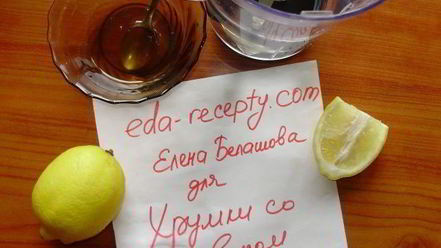 eda-recepty.com
Елена Белашова
для
Хрумки со